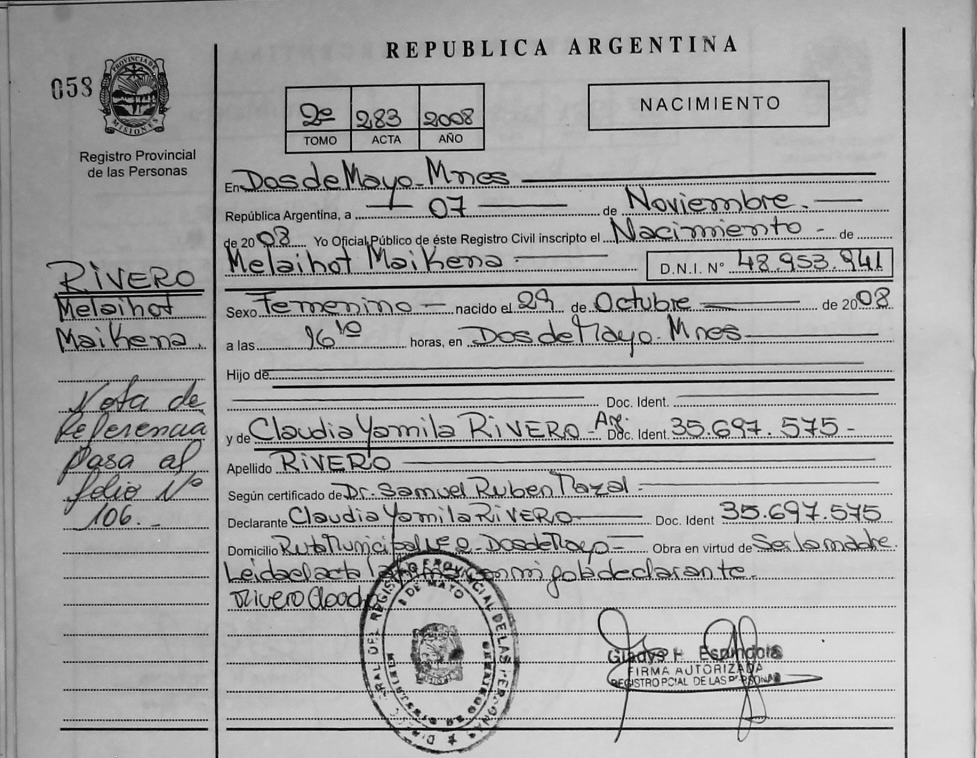 REPUBLICA ARGENTINA
058
PROVINCIA DE MISIONES
Registro Provincial
de las Personas
2º 283 2008
TOMO ACTA AÑO
NACIMIENTO
En Dos de Mayo - Mnes
República Argentina, a 07 de Noviembre.
de 2008 Yo Oficial Público de éste Registro Civil inscripto el Nacimiento - de
Melaihot Maikena D.N.I. Nº 48.953.941
Sexo Femenino - nacido el 29 de Octubre de 2008
a las 16 10 horas, en Dos de Mayo. Mnes
Hijo de
Doc. Ident.
y de Claudia Yamila RIVERO - Arg. Doc. Ident. 35.697.575 -
Apellido RIVERO
Según certificado de Dr. Samuel Ruben Mazal -
Declarante Claudia Yamila RIVERO Doc. Ident 35.697.575
Domicilio Ruta Municipal Dos de Mayo - Obra en virtud de Ser la madre.
Leida el acta la conmigo la declarante.
Rivero
RIVERO
Melaihot
Maikena.
Nota de
Referencia
pasa al
folio Nº
106.-
2 DE MAYO
Gladys Espindola
FIRMA AUTORIZADA
REGISTRO PCIAL DE LAS PERSONAS